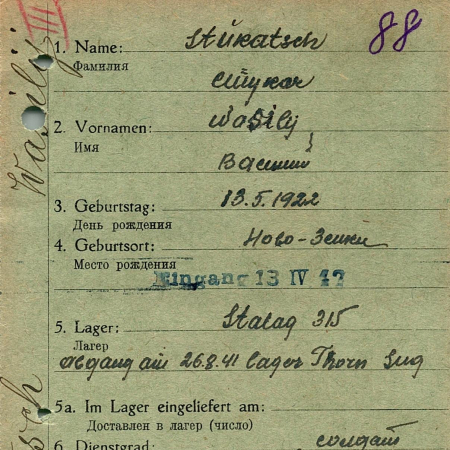 III
88
1. Name: Stukatsch
Фамилия
Стукач
2. Vornamen: Wasilij
Имя
Василий
3. Geburtstag: 13.5.1922
День рождения
4. Geburtsort: Ново-Зенки
Место рождения
Eingang 13 IV 42
5. Lager: Stalag 315
Лагер
Abgang am 26.8.41 Lager Thorn
5a. Im Lager eingeliefert am:
Доставлен в лагер (число)
6. Dienstgrad: солдат
Wasilij